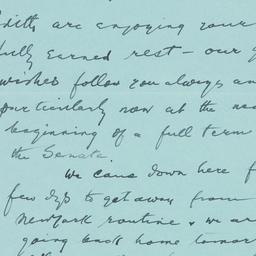 Edith are enjoying your
fully earned rest – our g
wishes follow you always an
particularly now at the
beginning of a full term
the Senate.
We came down here f
few dys to get away from
New York routine & we are
going back home tomor